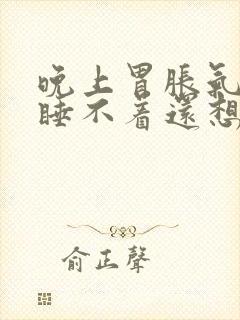 晚上胃脹氣
睡不着還想
俞正聲